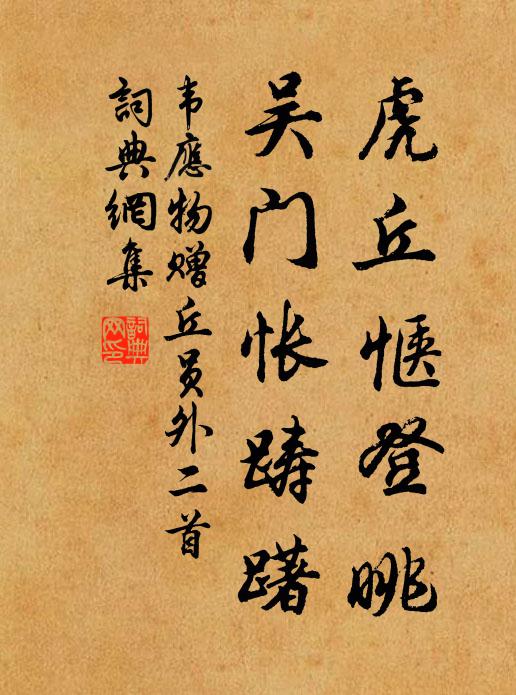 虎丘惬登眺
吴门怅踌躇
韦應物赠丘员外二首
詞典網集
詞典网印